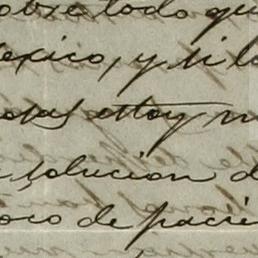 sobre todo qu
exico, y si lo
osas estoy m
solucion d
oco de pacie